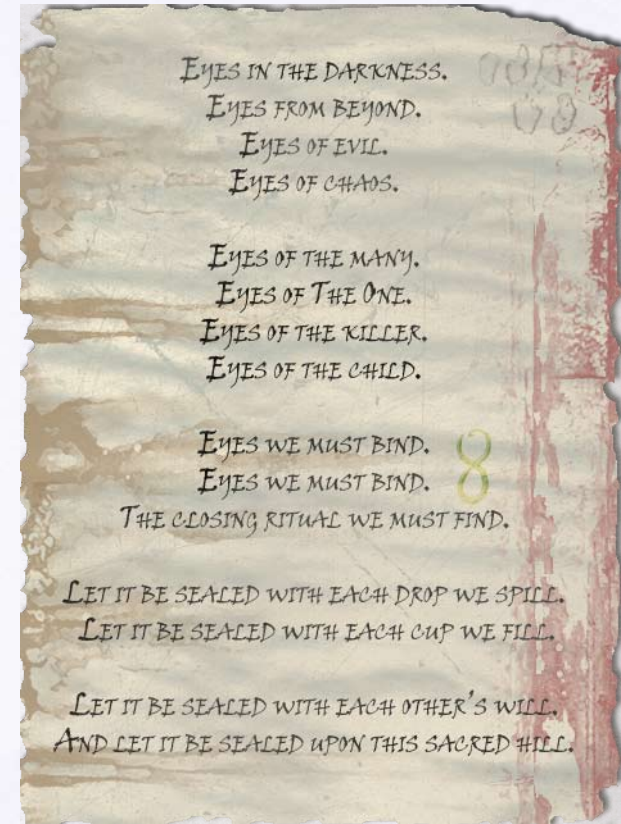 Eyes in the darkness.
Eyes from beyond.
Eyes of evil.
Eyes of chaos.
Eyes of the many.
Eyes of The One.
Eyes of the killer.
Eyes of the child.
Eyes we must bind.
Eyes we must bind.
8
The closing ritual we must find.
Let it be sealed with each drop we spill.
Let it be sealed with each cup we fill.
Let it be sealed with each other's will.
And let it be sealed upon this sacred hill.